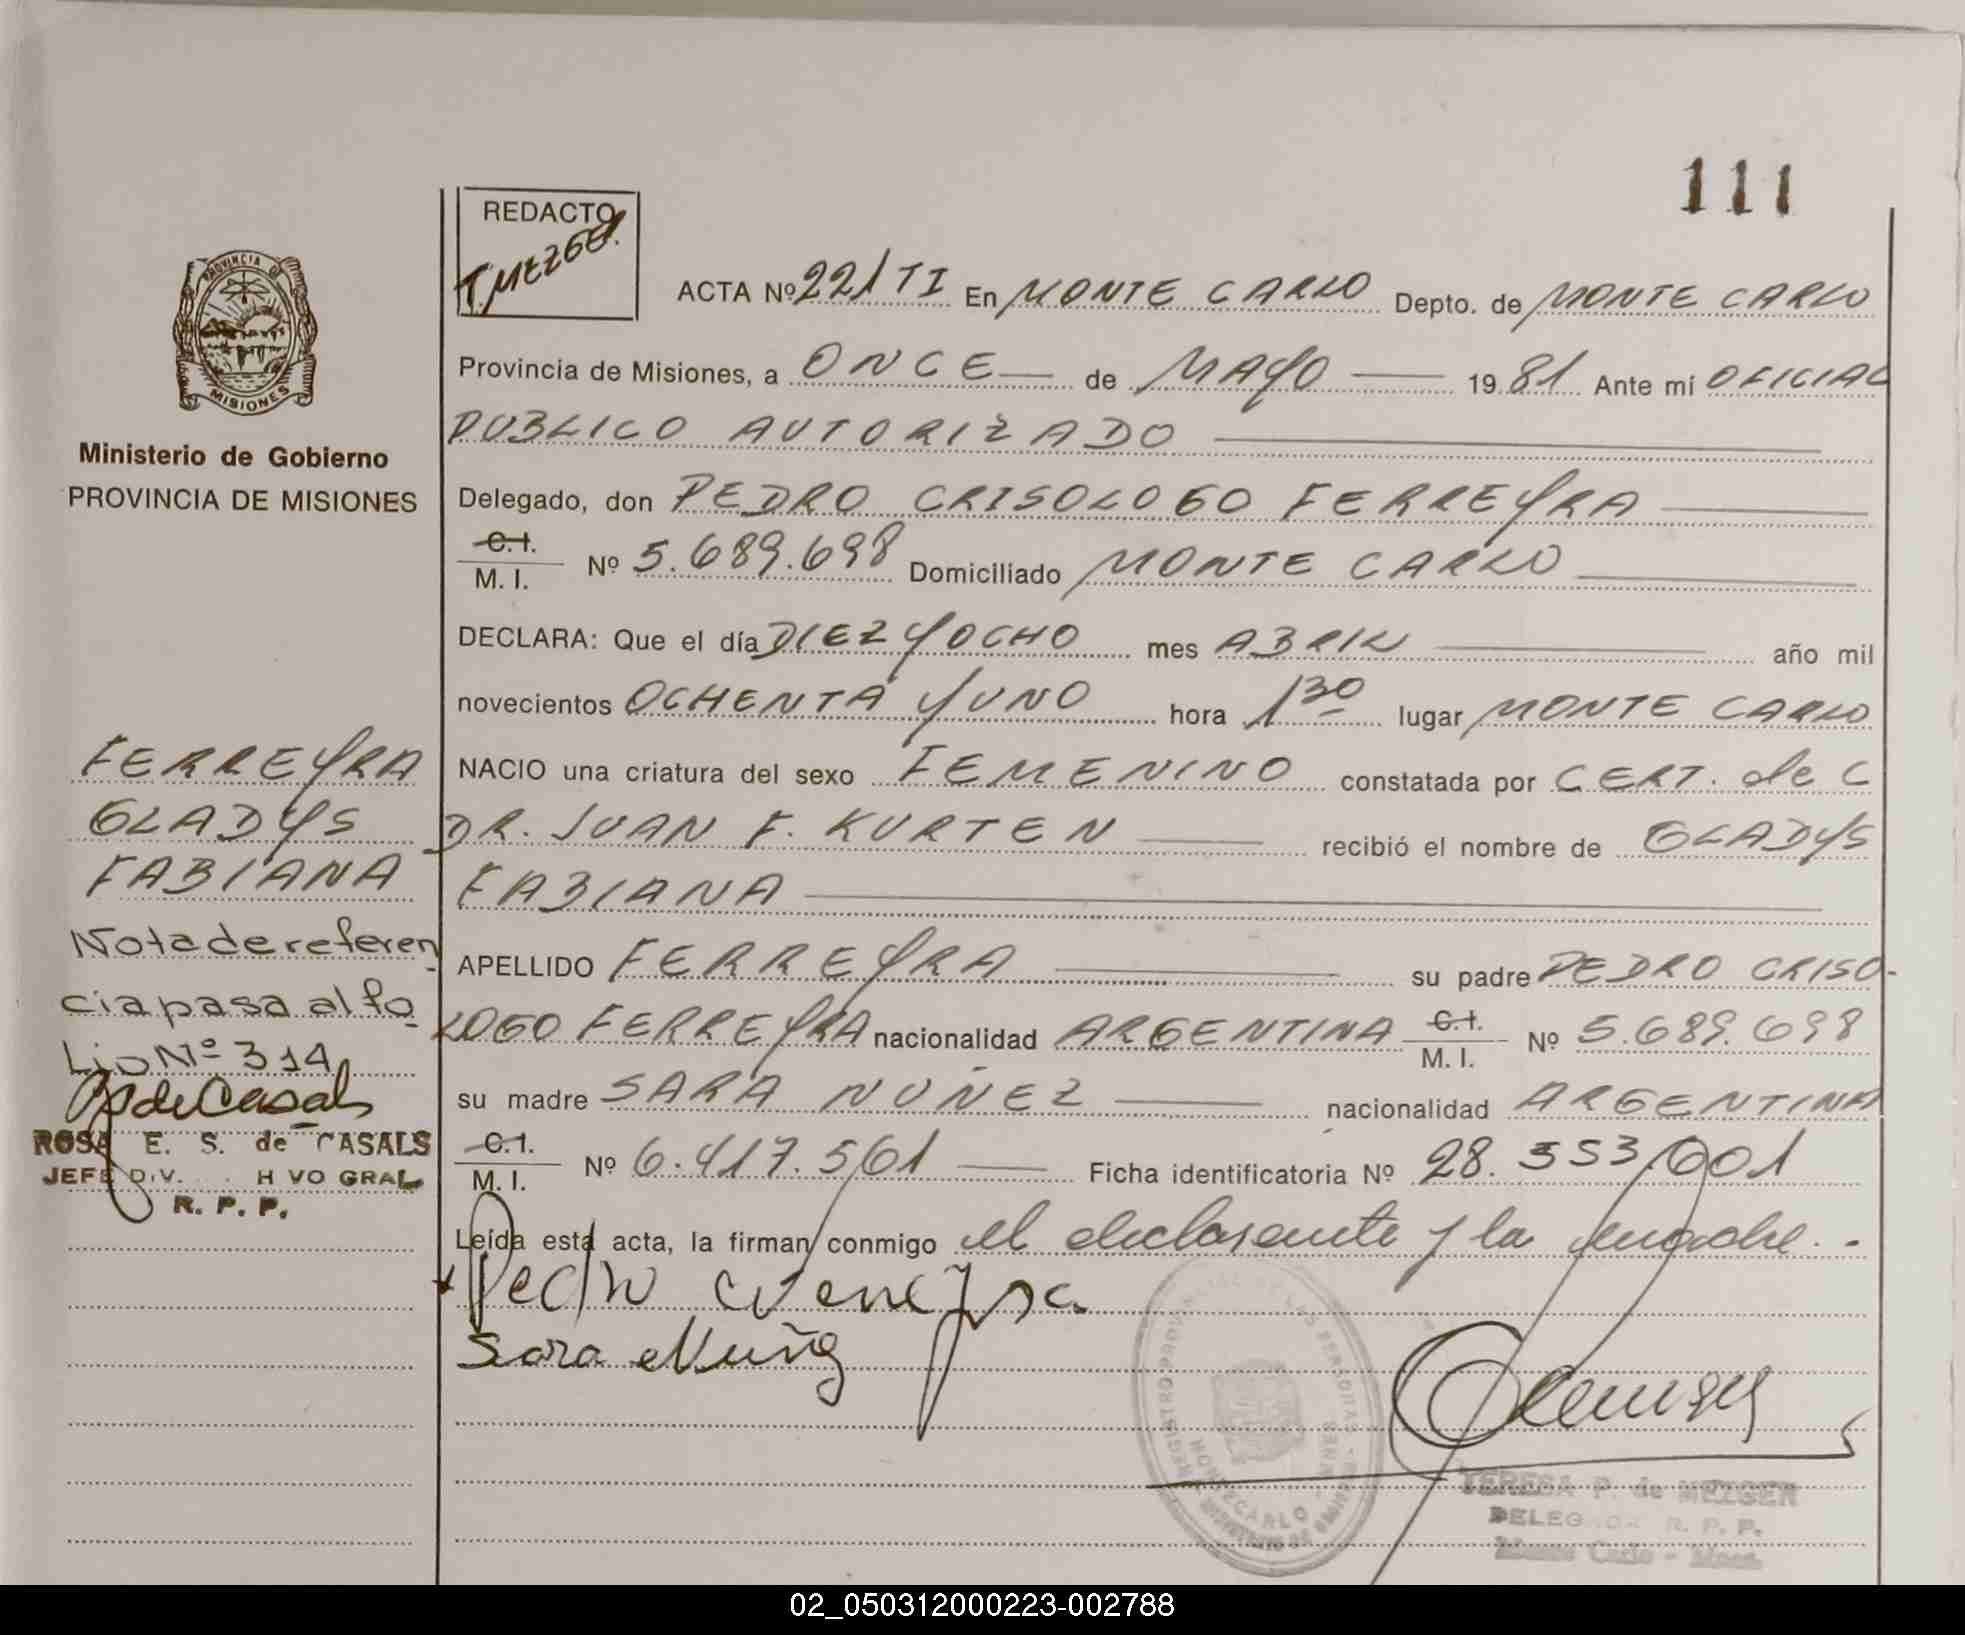 111
REDACTO
T. Mezger
ACTA Nº 221 TI En MONTE CARLO Depto. de MONTE CARLO
PROVINCIA DE
MISIONES
Provincia de Misiones, a ONCE de MAYO 1981 Ante mi OFICIAL
PUBLICO AUTORIZADO
Ministerio de Gobierno
PROVINCIA DE MISIONES
Delegado, don PEDRO CRISOLOGO FERREYRA
C.I.
M. I. Nº 5.689.698 Domiciliado MONTE CARLO
DECLARA: Que el día DIEZ Y OCHO mes ABRIL año mil
novecientos OCHENTA Y UNO hora 1 30 lugar MONTE CARLO
FERREYRA
GLADYS
FABIANA
NACIO una criatura del sexo FEMENINO constatada por CERT. de C
DR. JUAN F. KURTEN recibió el nombre de GLADYS
FABIANA
Nota de referen
-
cia pasa al fo
-
Lio Nº 314
APELLIDO FERREYRA su padre PEDRO CRISO-
LOGO FERREYRA nacionalidad ARGENTINA C.I.
M. I. Nº 5.689.698
su madre SARA NUÑEZ nacionalidad ARGENTINA
C.I.
M. I. Nº 6.417.561 Ficha identificatoria Nº 28.353/001
RS de Casals
ROSA E. S. de CASALS
JEFE DIV. H VO GRAL
R. P. P.
Leída esta acta, la firman conmigo el declarante y la madre.-
Pedro C Ferreyra
Sara Nuñez
REGISTRO PROVINCIAL DE LAS PERSONAS
MONTECARLO
TERESA P. de MEZGER
DELEGADA R. P. P.
Monte Carlo - Mnes.
02_050312000223-002788